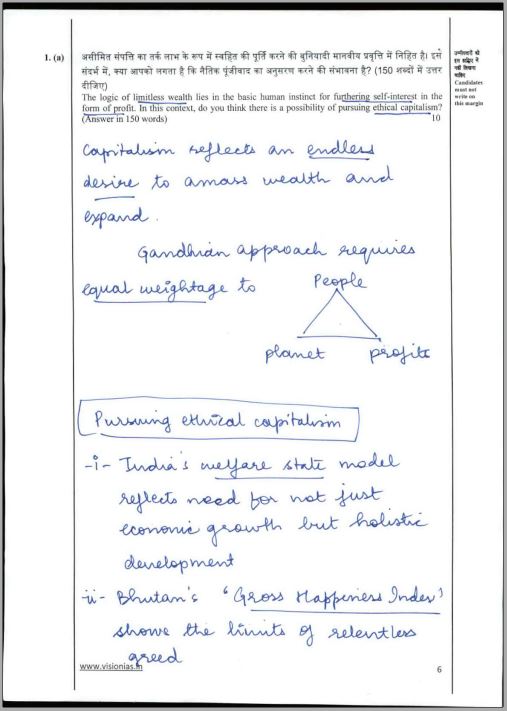 1. (a) असीमित संपत्ति का तर्क लाभ के रूप में स्वहित की पूर्ति करने की बुनियादी मानवीय प्रवृत्ति में निहित है। इस
संदर्भ में, क्या आपको लगता है कि नैतिक पूंजीवाद का अनुसरण करने की संभावना है? (150 शब्दों में उत्तर
दीजिए)
The logic of limitless wealth lies in the basic human instinct for furthering self-interest in the
form of profit. In this context, do you think there is a possibility of pursuing ethical capitalism?
(Answer in 150 words) 10
उम्मीदवारों को
इस हाशिए में
नहीं लिखना
चाहिए
Candidates
must not
write on
this margin
Capitalism reflects an endless
desire to amass wealth and
expand.
Gandhian approach requires
equal weightage to People
planet profits
Pursuing ethical capitalism
-i- India's welfare state model
reflects need for not just
economic growth but holistic
development
-ii- Bhutan's 'Gross Happiness Index'
shows the limits of relentless
greed
www.visionias.in 6